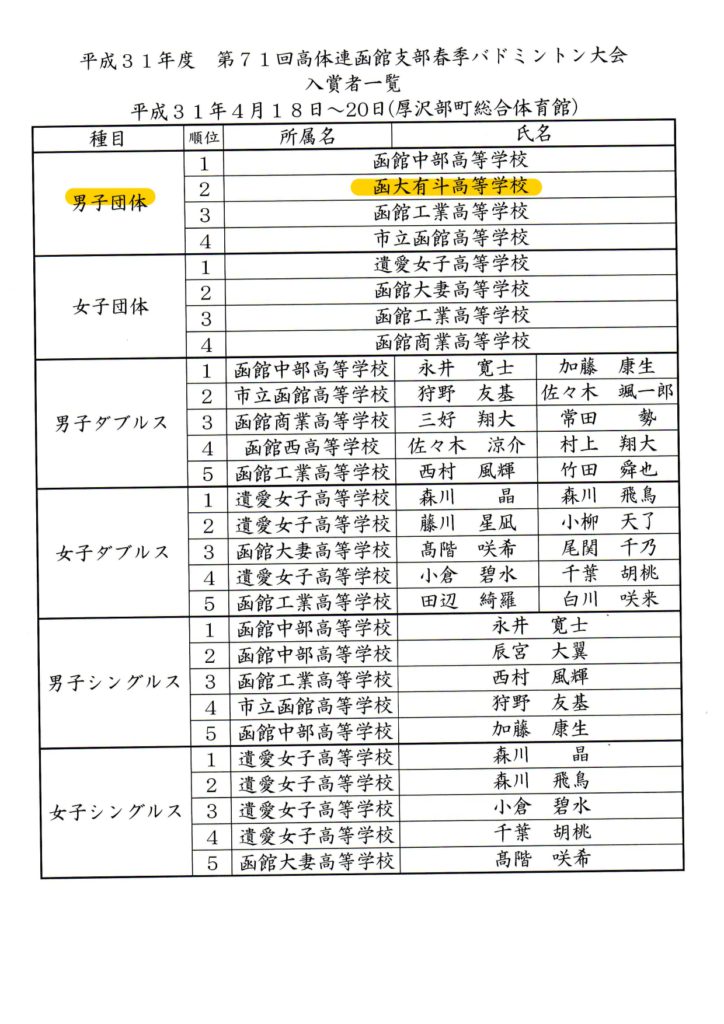 平成３１年度　第７１回高体連函館支部春季バドミントン大会
入賞者一覧
平成３１年４月１８日～20日(厚沢部町総合体育館)
種目 順位 所属名 氏名
男子団体
１ 函館中部高等学校
２ 函大有斗高等学校
３ 函館工業高等学校
４ 市立函館高等学校
女子団体
１ 遺愛女子高等学校
２ 函館大妻高等学校
３ 函館工業高等学校
４ 函館商業高等学校
男子ダブルス
１ 函館中部高等学校 永井　寛士 加藤　康生
２ 市立函館高等学校 狩野　友基 佐々木　颯一郎
３ 函館商業高等学校 三好　翔大 常田　勢
４ 函館西高等学校 佐々木　涼介 村上　翔大
５ 函館工業高等学校 西村　風輝 竹田　舜也
女子ダブルス
１ 遺愛女子高等学校 森川　晶 森川　飛鳥
２ 遺愛女子高等学校 藤川　星凪 小柳　天了
３ 函館大妻高等学校 髙階　咲希 尾関　千乃
４ 遺愛女子高等学校 小倉　碧水 千葉　胡桃
５ 函館工業高等学校 田辺　綺羅 白川　咲来
男子シングルス
１ 函館中部高等学校 永井　寛士
２ 函館中部高等学校 辰宮　大翼
３ 函館工業高等学校 西村　風輝
４ 市立函館高等学校 狩野　友基
５ 函館中部高等学校 加藤　康生
女子シングルス
１ 遺愛女子高等学校 森川　晶
２ 遺愛女子高等学校 森川　飛鳥
３ 遺愛女子高等学校 小倉　碧水
４ 遺愛女子高等学校 千葉　胡桃
５ 函館大妻高等学校 髙階　咲希